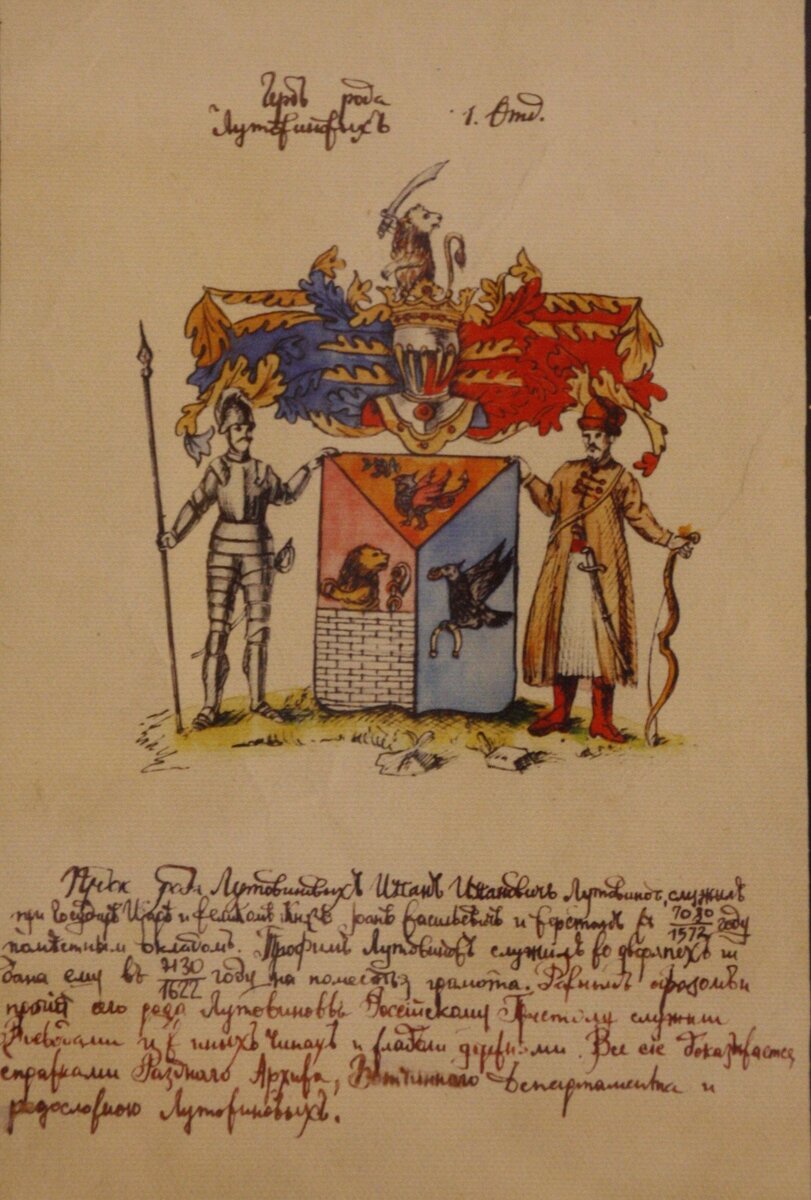 Гербъ рода
Лутовиновыхъ 1. Отд.
рода Лутовиновыхъ Иванъ Ивановичъ Лутовиновъ, служилъ
при Государѣ Царѣ и Васильевичѣ и верстанъ въ 7080/1572 году
помѣстнымъ окладомъ. Трофимъ Лутовиновъ служилъ во дворянехъ и
дана ему въ 7130/1622 году на поместья грамота. Равнымъ образомъ и
его рода Лутовиновы Россійскому Престолу служили
Воеводами и въ иныхъ чинахъ и владели деревнями. Все сіе доказывается
справками Архива, Вотчиннаго Департамента и
родословною Лутовиновыхъ.